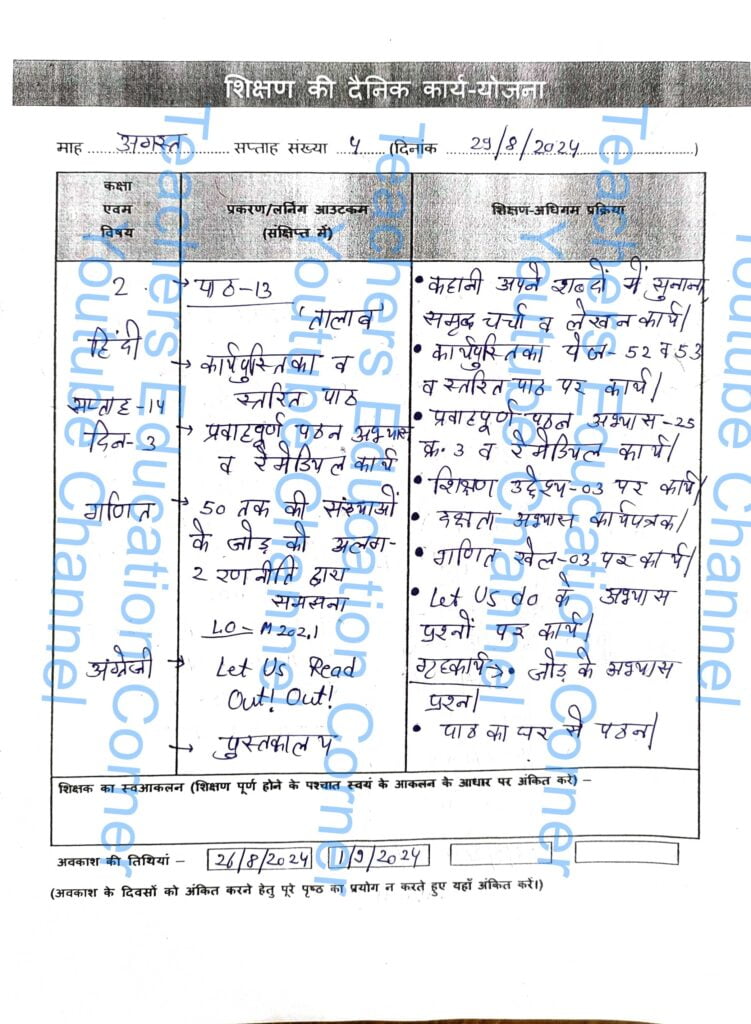 शिक्षण की दैनिक कार्य-योजना
माह अगस्त सप्ताह संख्या 4 (दिनांक 29/8/2024)
कक्षा
एवम
विषय
प्रकरण/लर्निंग आउटकम
(संक्षिप्त में)
शिक्षण-अधिगम प्रक्रिया
2
हिंदी
सप्ताह-14
दिन-3
गणित
अंग्रेजी
→ पाठ-13
'तालाब'
→ कार्यपुस्तिका व
स्तरित पाठ
→ प्रवाहपूर्ण पठन अभ्यास
व रैमेडियल कार्य
→ 50 तक की संख्याओं
के जोड़ को अलग-
2 रणनीति द्वारा
समझना
LO-M202.1
→ Let Us Read
Out! Out!
→ पुस्तकालय
• कहानी अपने शब्दों में सुनाना,
समृद्ध चर्चा व लेखन कार्य।
• कार्यपुस्तिका पेज-52 व 53
व स्तरित पाठ पर कार्य।
• प्रवाहपूर्ण पठन अभ्यास-25
क्र. 3 व रैमेडियल कार्य।
• शिक्षण उद्देश्य-03 पर कार्य।
• दक्षता अभ्यास कार्यपत्रक।
• गणित खेल-03 पर कार्य।
• Let Us do के अभ्यास
प्रश्नों पर कार्य।
गृहकार्य→ • जोड़ के अभ्यास
प्रश्न।
• पाठ का घर से पठन।
शिक्षक का स्वआकलन (शिक्षण पूर्ण होने के पश्चात स्वयं के आकलन के आधार पर अंकित करे) –
अवकाश की तिथियां – 26/8/2024 1/9/2024
(अवकाश के दिवसों को अंकित करने हेतु पूरे पृष्ठ का प्रयोग न करते हुए यहाँ अंकित करें।)
Teachers Education Corner
Youtube Channel
Teachers Education Corner
Youtube Channel
Teachers Education Corner
Youtube Channel